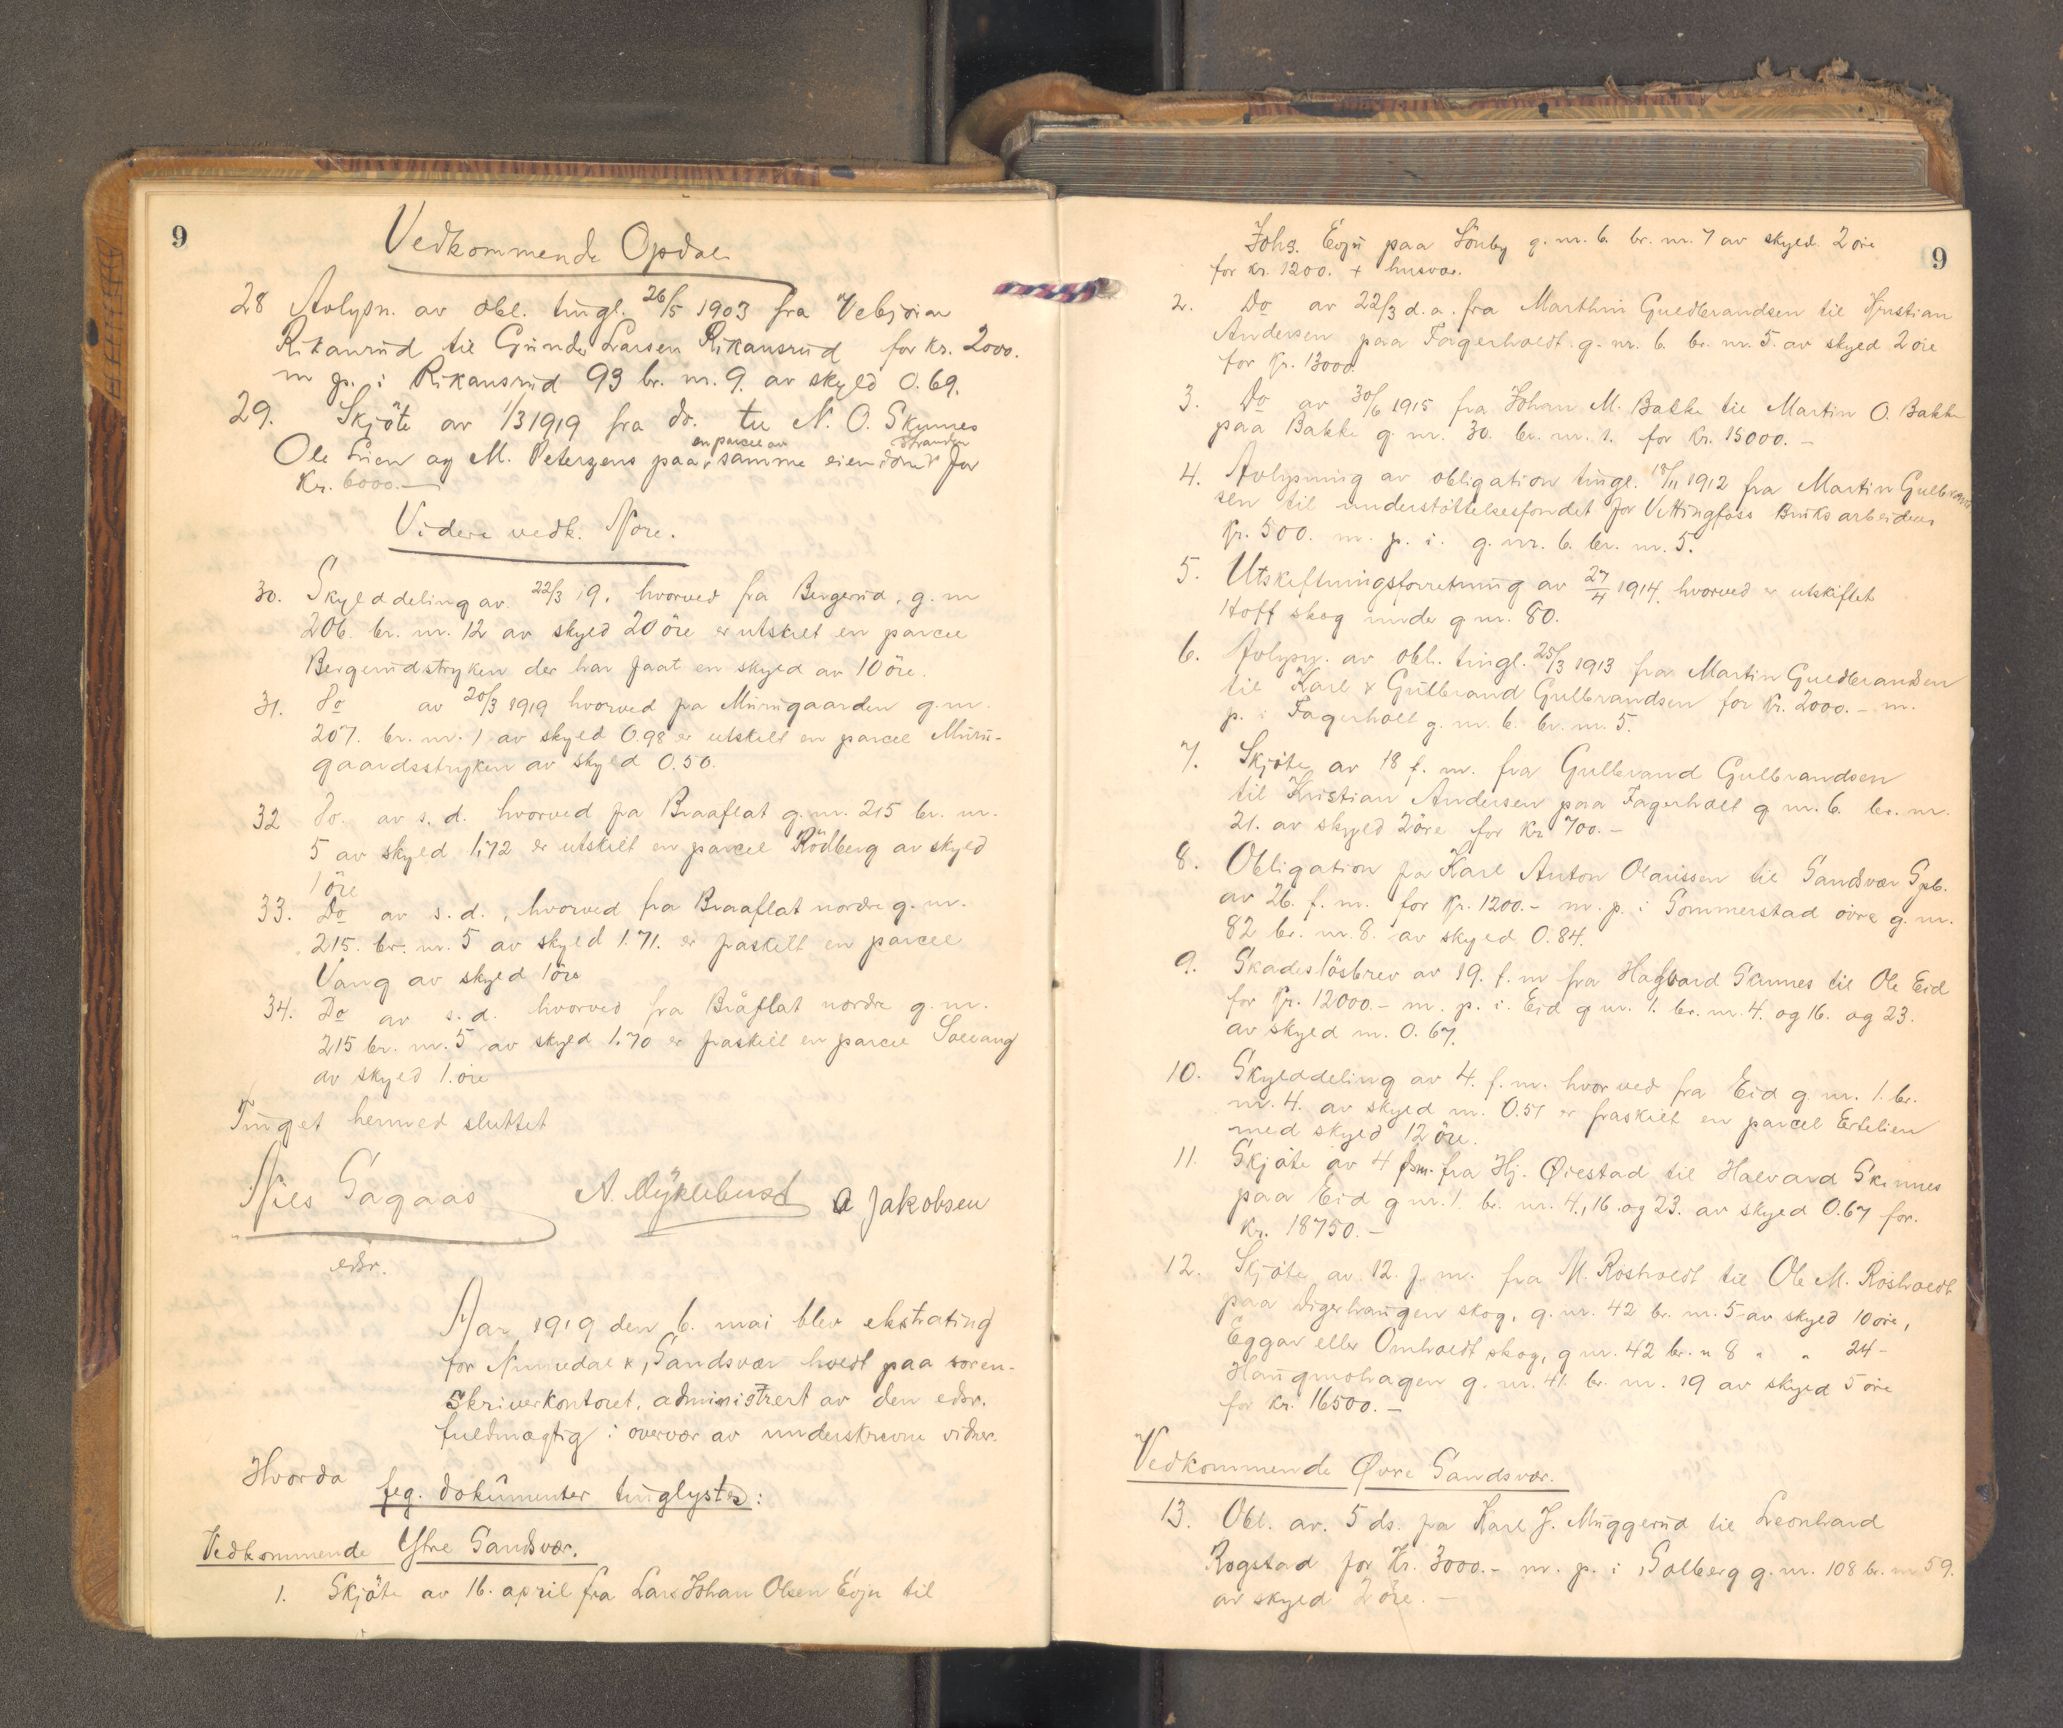 9
Vedkommende Opdal.
28 Avlysn. av obl. tingl. 26/5 1903 fra Vebjörn
Rikanrud til Gunder Larsen Rikansrud for kr. 2000.
m p. i Rikansrud 93 br. nr. 9. av skyld 0.69.
29. Skjöte av 1/3 1919 fra do. til N. O. Skinnes
en parcel av Stranden
Ole Lien og M. Petersens paa samme eiendom for
Kr. 6000.—
Videre vedk. Nore.
30. Skylddeling av 22/3 19, hvorved fra Bergerud, g. nr
206. br. nr. 12 av skyld 20 öre er utskilt en parcel
Bergerudstryken der har faat en skyld av 10 öre.
31. Do av 20/3 1919 hvorved fra Murugaarden g. nr.
207. br. nr. 1 av skyld 0.98 er utskilt en parcel Muru-
gaardsstryken av skyld 0.50.
32 Do. av s. d. hvorved fra Braaflat g. nr. 215 br. nr.
5 av skyld 1,72 er utskilt en parcel Rödberg av skyld
1 öre
33. Do av s. d., hvorved fra Braaflat nordre g. nr.
215. br. nr. 5 av skyld 1.71. er fraskilt en parcel
Vang av skyld 1 öre
34. Do av s. d. hvorved fra Bråflat nordre g. nr.
215 br. nr. 5 av skyld 1.70 er fraskilt en parcel Solvang
av skyld 1. öre
Tinget hermed sluttet
Nils Sagaas A. Myklebust A Jakobsen
edsv.
Aar 1919 den 6. mai blev ekstrating
for Numedal & Sandsvær holdt paa soren-
skriverkontoret, administrert av den edsv.
fuldmægtig i overvær av underskrevne vidner.
Hvorda
flg. dokumenter tinglystes:
Vedkommende Ytre Sandsvær.
1. Skjöte av 16. april fra Lars Johan Olsen Evju til
9
Johs. Evju paa Sönby g. nr. 6. br. nr. 7 av skyld 2 öre
for kr. 1200. + husvær.
2. Do av 22/3 d. a. fra Marthin Guldbrandsen til Kristian
Andersen paa Fagerholdt g. nr. 6. br. nr. 5. av skyld 2 öre
for Kr. 13000.
3. Do av 30/6 1915 fra Johan M. Bakke til Martin O. Bakke
paa Bakke g. nr. 30. br. nr. 1. for Kr. 15000.—
4. Avlysning av obligation tingl. 18/11 1912 fra Martin Gulbrand
sen til understöttelsesfondet for Vittingfoss Bruks arbeidere
Kr. 500. m. p. i. g. nr. 6. br. nr. 5.
5. Utskiftningsforretning av 27/4 1914. hvorved er utskiftet
Hoff skog under g nr. 80.
6. Avlysn. av obl. tingl. 25/3 1913 fra Martin Guldbrandsen
til Karl & Gulbrand Gulbrandsen for Kr. 2000.— m.
p. i Fagerholt g. nr. 6. br. nr. 5.
7. Skjöte av 18 f. m. fra Gulbrand Gulbrandsen
til Kristian Andersen paa Fagerholt g nr. 6. br. nr.
21. av skyld 2 öre for Kr 700.—
8. Obligation fra Karl Anton Olaussen til Sandsvær Spb.
av 26. f. m. for Kr. 1200.— m. p. i Sommerstad övre g. nr.
82 br. nr. 8. av skyld 0.84.
9. Skadeslösbrev av 19. f. m fra Halvard Skinnes til Ole Eid
for Kr. 12000.— m. p. i. Eid g nr. 1. br. nr. 4. og 16. og 23.
av skyld m. 0.67.
10. Skylddeling av 4. f. m. hvorved fra Eid g. nr. 1. br.
nr. 4. av skyld m. 0.51 er fraskilt en parcel Ertelien
med skyld 12 öre.
11. Skjöte av 4 f.m. fra Hj. Øiestad til Halvard Skinnes
paa Eid g nr. 1. br. nr. 4., 16. og 23. av skyld 0.67 for.
Kr. 18750.—
12. Skjöte av 12. f. m. fra M. Rosholdt til Ole M. Rosholdt
paa Digerhaugen skog, g. nr. 42 br. nr. 5 av skyld 10 öre,
Eggar eller Omholdt skog, g nr. 42 br. " 8 " " 24 -
Haugmohagen g. nr. 41. br. nr. 19 av skyld 5 öre
for Kr. 16500.—
Vedkommende Øvre Sandsvær.
13. Obl. av. 5 ds. fra Karl J. Muggerud til Leonhard
Rogstad for Kr. 3000.— m. p. i Solberg g. nr. 108 br. nr 59.
av skyld 2 öre.—